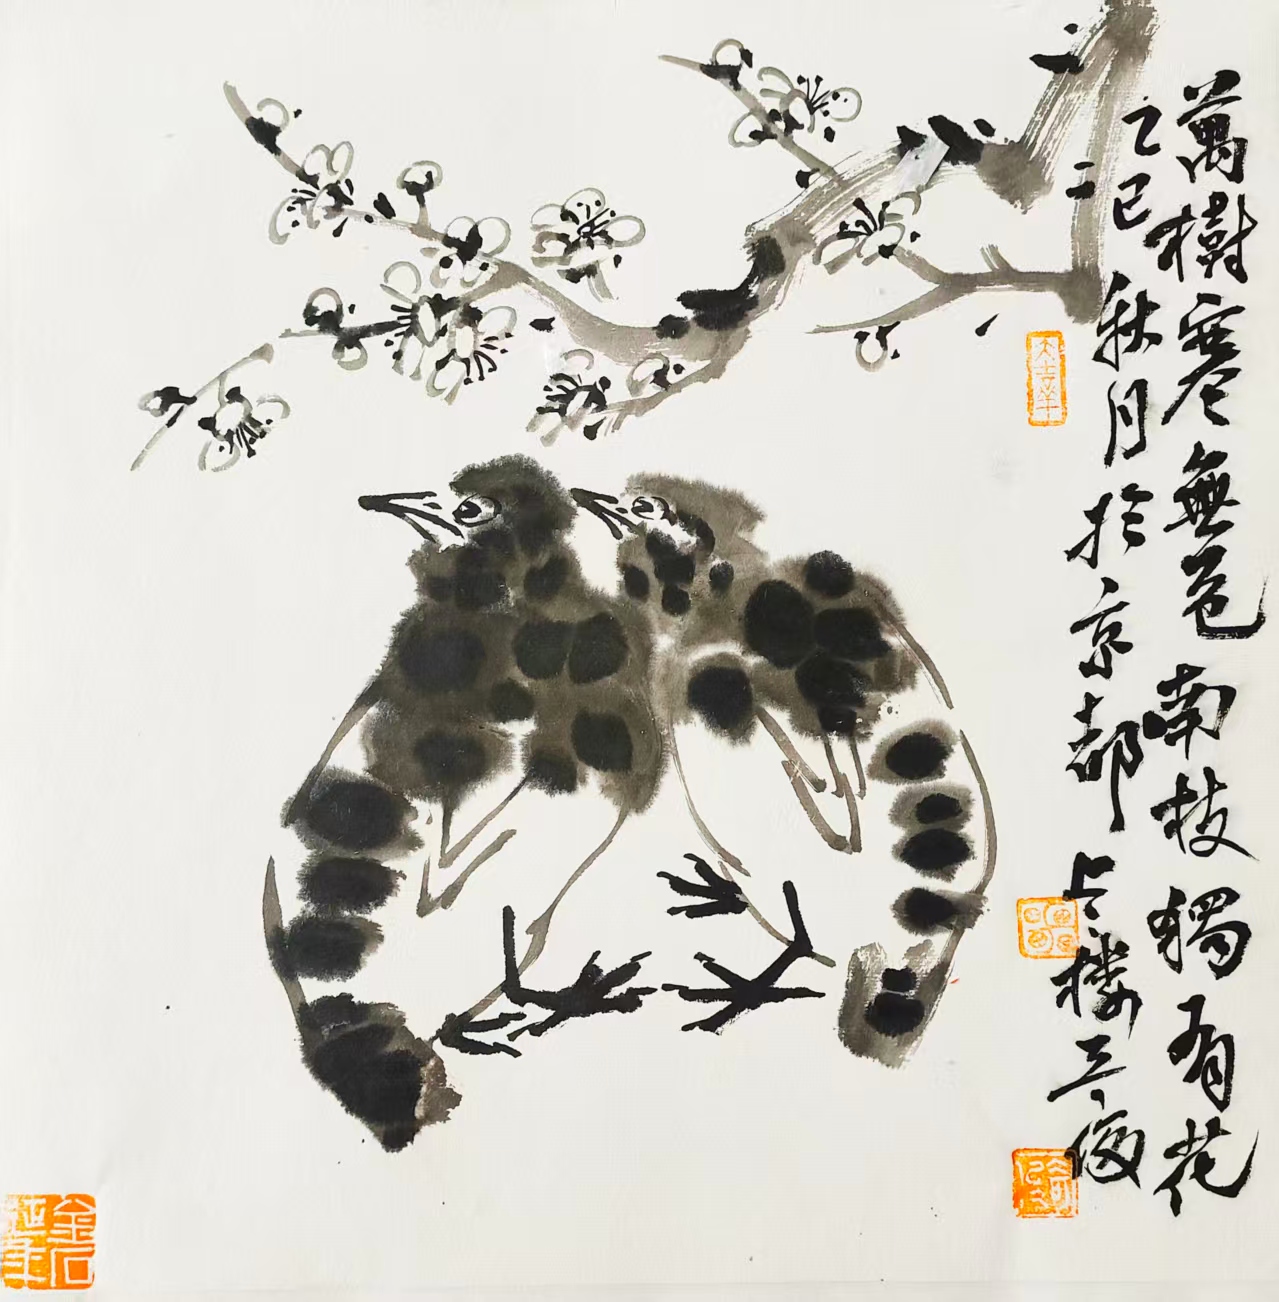 萬樹寒無色南枝獨有花
乙巳秋月於京都
大吉羊
金石延年